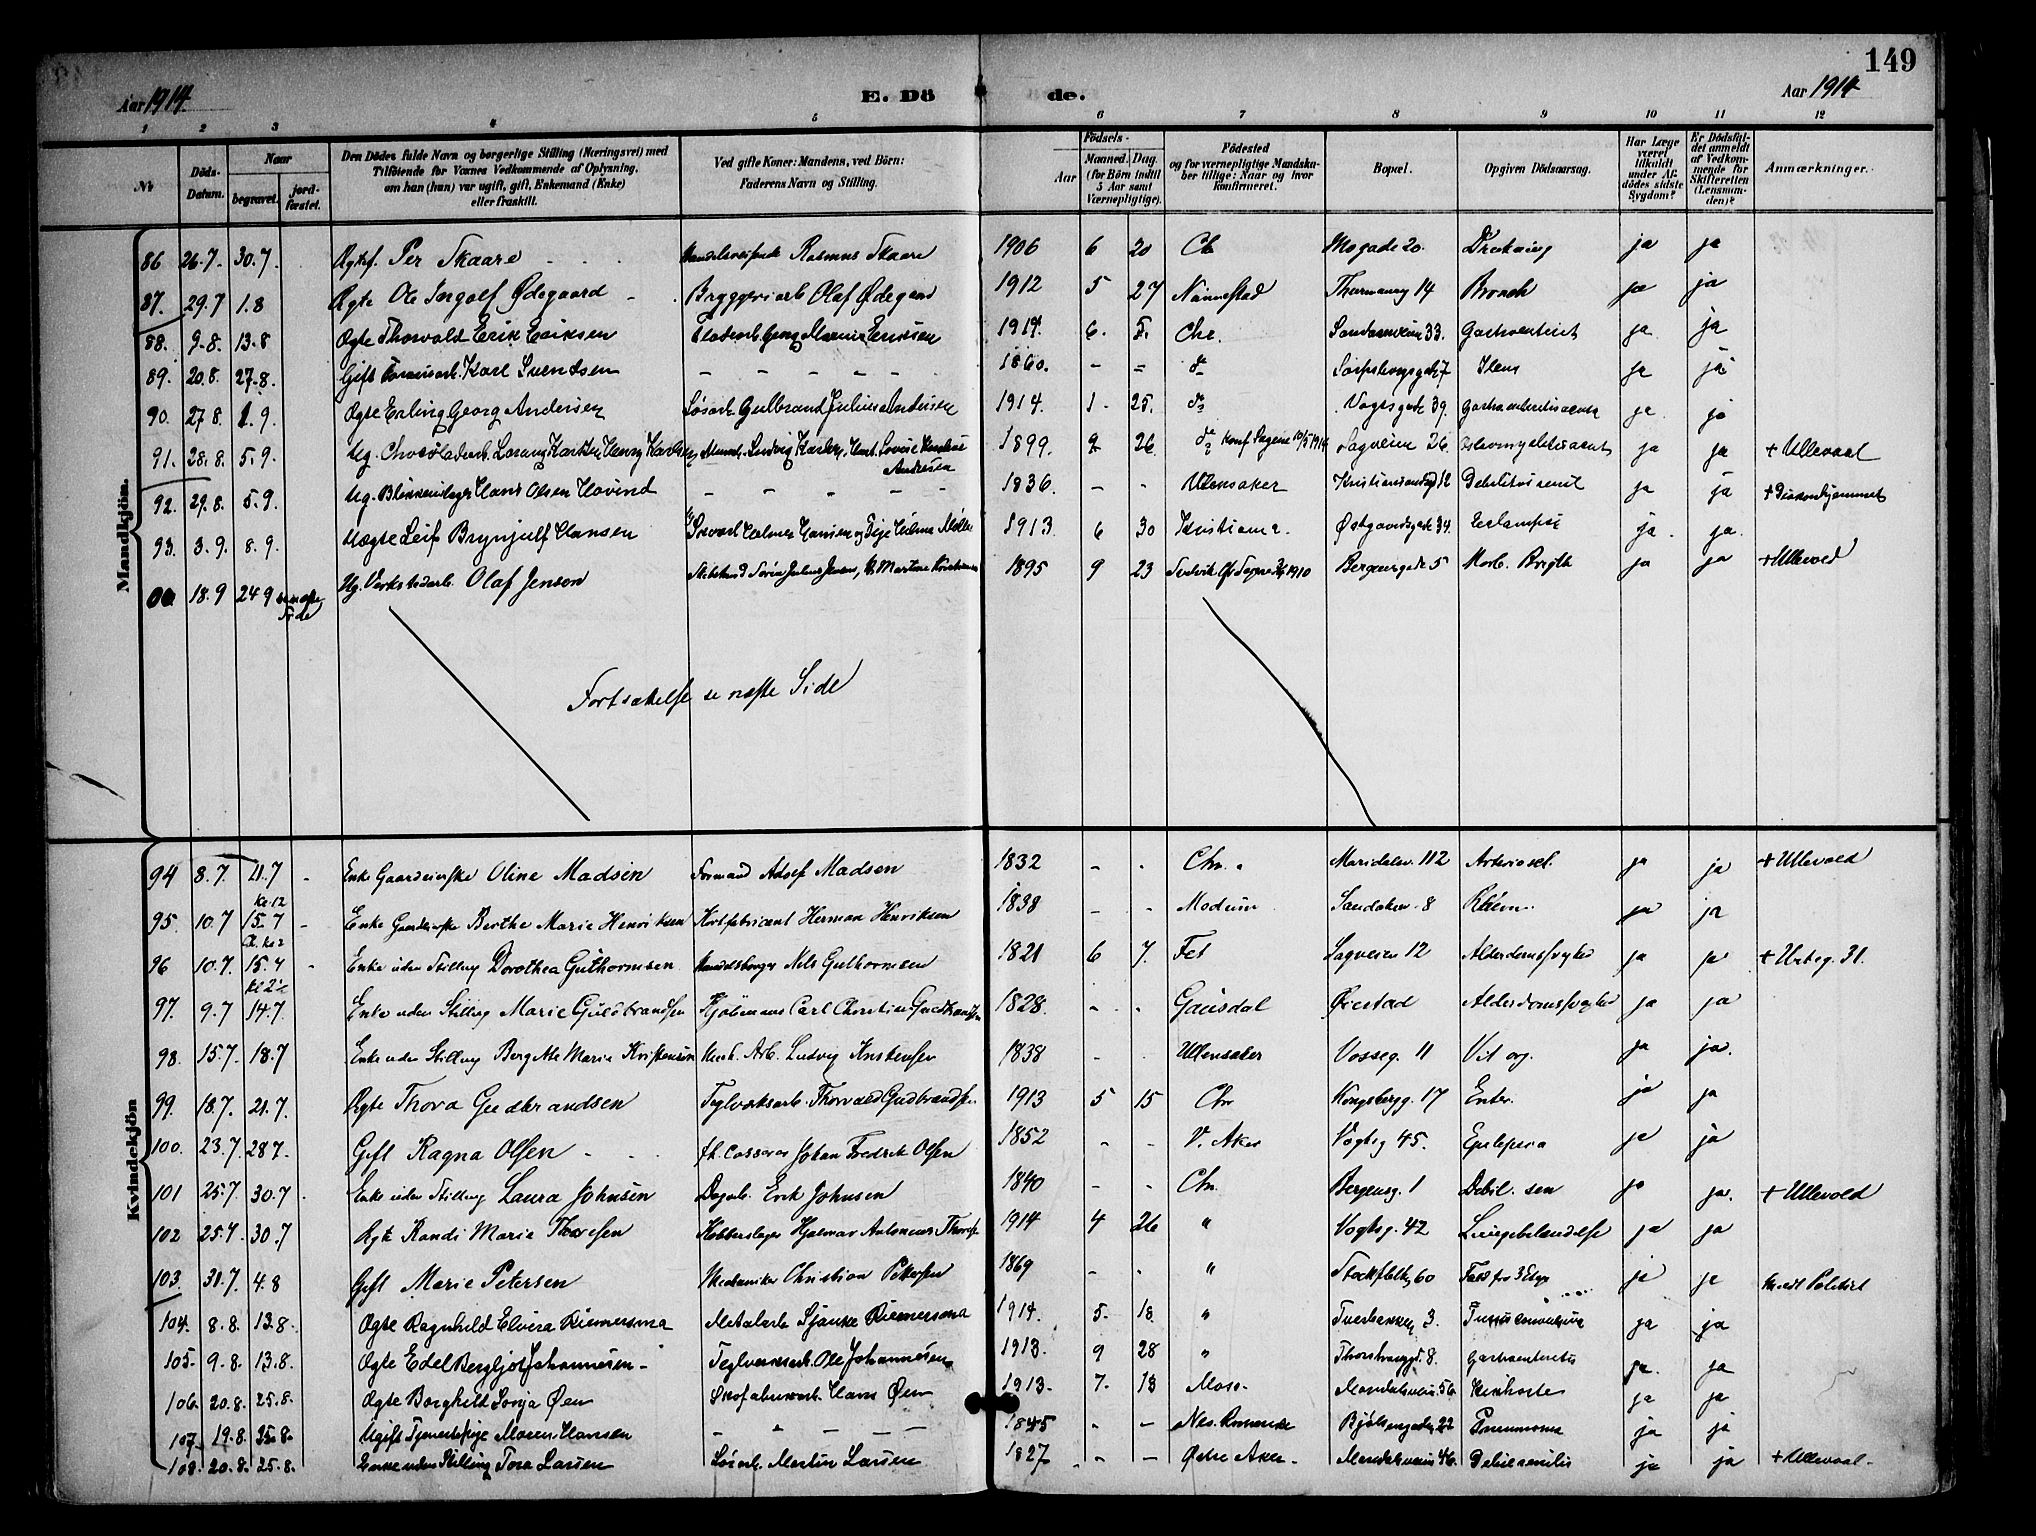 149
Aar 1914. E. Dö de. Aar 1914
1 2 3 4 5 6 7 8 9 10 11 12
No Döds-Datum. Naar begravet. jord-fæstet. Den Dödes fulde Navn og borgerlige Stilling (Næringsvei) med Tilföiende for Voxnes Vedkommende af Oplysning, om han (hun) var ugift, gift, Enkemand (Enke) eller fraskilt. Ved gifte Koner: Mandens, ved Börn: Faderens Navn og Stilling. Födsels- Aar Maaned. Dag. (for Börn indtil 5 Aar samt Værnepligtige). Födested og for værnepligtige Mandskaber tillige: Naar og hvor konfirmeret. Bopæl. Opgiven Dödsaarsag. Har Læge været tilkaldt under Afdödes sidste Sygdom? Er Dödsfaldet anmeldt af Vedkommende for Skifteretten (Lensmanden)? Anmærkninger.
Mandkjön.
86 26.7. 30.7. Per Skaare Rasmus Skaare 1906 6 20 Ch Mogade 20. Drukning ja ja
87. 29.7 1.8 Ægte Ole Ingolf Ødegaard Bryggeriarb Olaf Ødegaard 1912 5 27 Nannestad 14 Bronch ja ja
88. 9.8. 13.8 Ægte Thorvald Erik Eriksen Georg Marius Eriksen 1914. 6. 5. Chr. 33. Gastroenterit ja ja
89. 20.8. 27.8. Gift Karl Svendsen – – – – – 1860. – – do Sarpsborggade 7 Ileus ja ja
90. 27.8. 1.9. Ægte Erling Georg Andersen Løsarb. Gulbrand Julius Andersen 1914. 1. 25. do Vogtsgade 39. Gastroenteritis acuta ja ja
91. 28.8. 5.9. Ug. Chocoladearb. Karlsen Ludvig Karlsen, Andersen 1899. 2 26 do konf Sagene 10/5 1914 Sagveien 26 ja ja + Ullevaal
92. 29.8. 5.9. Ug. Blikkenslager Hans Olsen Hovind – – – – – 1836. – – Ullensaker 12 Debilitas senil ja ja + Diakonhjemmet
93. 3.9. 8.9. Uægte Leif Brynjulf Hansen Hansen og Pige 1913. 6 30 Kristiania. Østgaardsgade 34. Eclampsi ja. ja.
18.9 24.9 se næste Side Ug. Verkstedarb. Olaf Jenson 1895 9 23 1910 Bergensgade 5 Morb. Brigth ja ja + Ullevold
Fortsættelse se næste Side
Kvindekjön
94 8.7. 11.7 Enke Gaardeierske Oline Madsen Formand Adolf Madsen 1832 – . Chr. Maridalsv. 112 Arterioscl. ja ja + Ullevold
95. 10.7 kl. 12 15.7 Enke Gaardeierske Berthe Marie Henriksen Herman Henriksen 1838 – . Modum Sandakerv. 8 ja ja
96 10.7. 15.7 Enke uden Stilling Dorothea Guthormsen Handelsborger Nils Guthormsen 1821 6 7. Fet Sagveien 12 Alderdomssvghe ja ja + Urteg. 31.
97. 9.7 14.7. Enke uden Stilling Marie Guldbrandsen Kjøbmand Carl Christian Guldbrandsen 1828. – . Gausdal Øiestad Alderdomssvghe ja ja
98. 15.7 18.7 Enke uden Stilling Bergitte Marie Kristensen Mek. Arb. Ludvig Kristensen 1838 – . Ullensaker Vosseg. 11 Vit. org. ja ja.
99. 18.7. 21.7. Ægte Thora Gudbrandsen Teglværksarb. Thorvald Gudbrandsen 1913 5 15 Chr Kongsbergg. 17 Enter. ja ja
100. 23.7. 28.7. Gift Ragna Olsen fh. Johan Fredrik Olsen 1852 – – V. Aker Vogtsg 45. Epilepsia ja ja
101 25.7. 30.7 Enke uden Stilling Laura Johnsen Dagarb. Erik Johnsen 1840 – – Chr. Bergensg. 1 Debil. sen ja ja. + Ullevold
102 25.7. 30.7 Ægte Randi Marie Thoresen Kobberslager Hjalmar Antonius Thoresen 1914 4 26 " Vogtsg. 42 Lungebetændelse ja ja
103 31.7. 4.8 Gift Marie Petersen Mekaniker Christian Petersen 1869 – . " 60 Fald fra 3 Etge ja ja medt Politiet
104. 8.8. 13.8. Ægte Ragnhild Elvira Riemersma Metalarb Riemersma 1914. 5. 18 " 3. ja ja
105. 9.8. 13.8. Ægte Edel Bergljot Johannesen Teglverksarb. Ole Johannesen 1913. 9 28 " 8. Gastroenteritis ja. ja
106. 20.8. 25.8. Ægte Borghild Sonja Øen Hans Øen 1913. 7. 18 Moss. 56. Kikhoste ja ja
107. 19.8. 25.8. Ugift Tjenestepige Maren Hansen – – – – 1845 – – Nes. Romerike Bjølsengaden 22 Pneumonia ja ja
108. 20.8. 25.8. Enke uden Stilling Tora Larsen Løsarb. Martin Larsen 1827 – – Østre Aker. 46. Debil. senilis ja ja + Ullevaal.